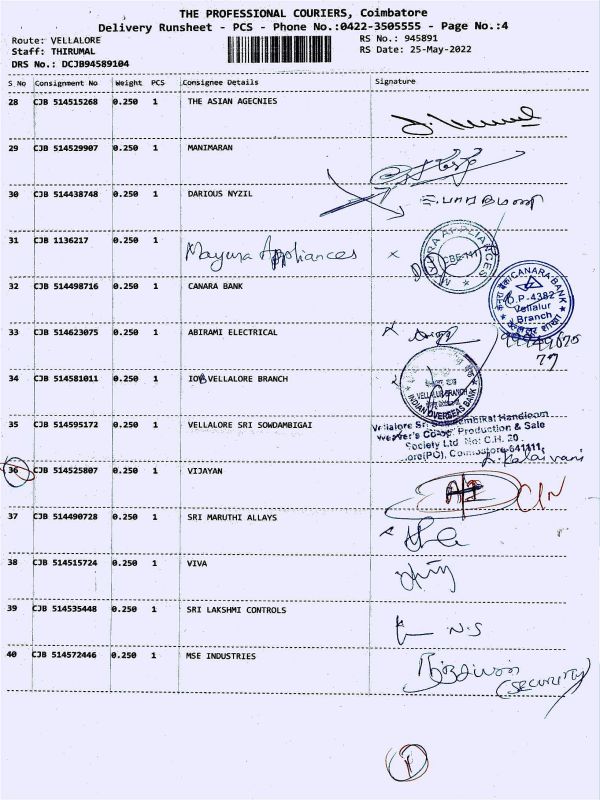 THE PROFESSIONAL COURIERS, Coimbatore
Delivery Runsheet - PCS - Phone No.:0422-3505555 - Page No.:4
Route: VELLALORE RS No.: 945891
Staff: THIRUMAL RS Date: 25-May-2022
DRS No.: DCJB94589104
S No Consignment No Weight PCS Consignee Details Signature
28 CJB 514515268 0.250 1 THE ASIAN AGECNIES
29 CJB 514529907 0.250 1 MANIMARAN
30 CJB 514438748 0.250 1 DARIOUS NYZIL
31 CJB 1136217 0.250 1 Mayura Appliances x
MAYURA APPLIANCES
CBE-141
32 CJB 514498716 0.250 1 CANARA BANK
CANARA BANK
D.P-4382
Vellalur
Branch
33 CJB 514623075 0.250 1 ABIRAMI ELECTRICAL
34 CJB 514581011 0.250 1 IOB VELLALORE BRANCH
VELLALUR BRANCH
INDIAN OVERSEAS BANK
35 CJB 514595172 0.250 1 VELLALORE SRI SOWDAMBIGAI
Vellalore Sri Handloom
Weaver's Co-op: Production & Sale
Society Ltd No: C.H. 20
Coimbatore-641111,
Kalaivani
36 CJB 514525807 0.250 1 VIJAYAN
37 CJB 514490728 0.250 1 SRI MARUTHI ALLAYS
38 CJB 514515724 0.250 1 VIVA
39 CJB 514535448 0.250 1 SRI LAKSHMI CONTROLS
N.S
40 CJB 514572446 0.250 1 MSE INDUSTRIES
(security)